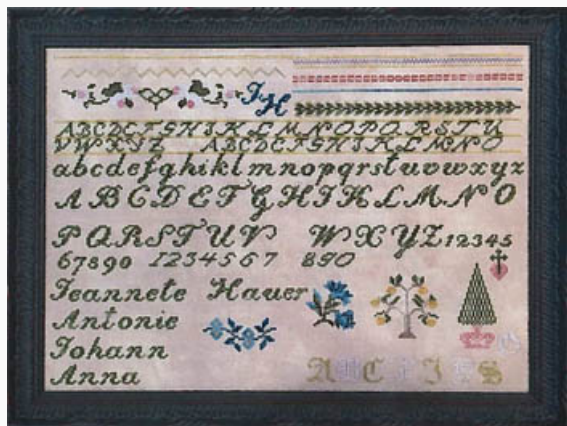 JH
ABCDEFGHIKLMNOPQRSTU
VWXYZ ABCDEFGHIKLMNO
abcdefghiklmnopqrstuvwxyz
ABCDEFGHIKLMNO
PQRSTUV WXYZ12345
67890 1234567 890
Jeannete Hauer
Antonie
Johann
Anna